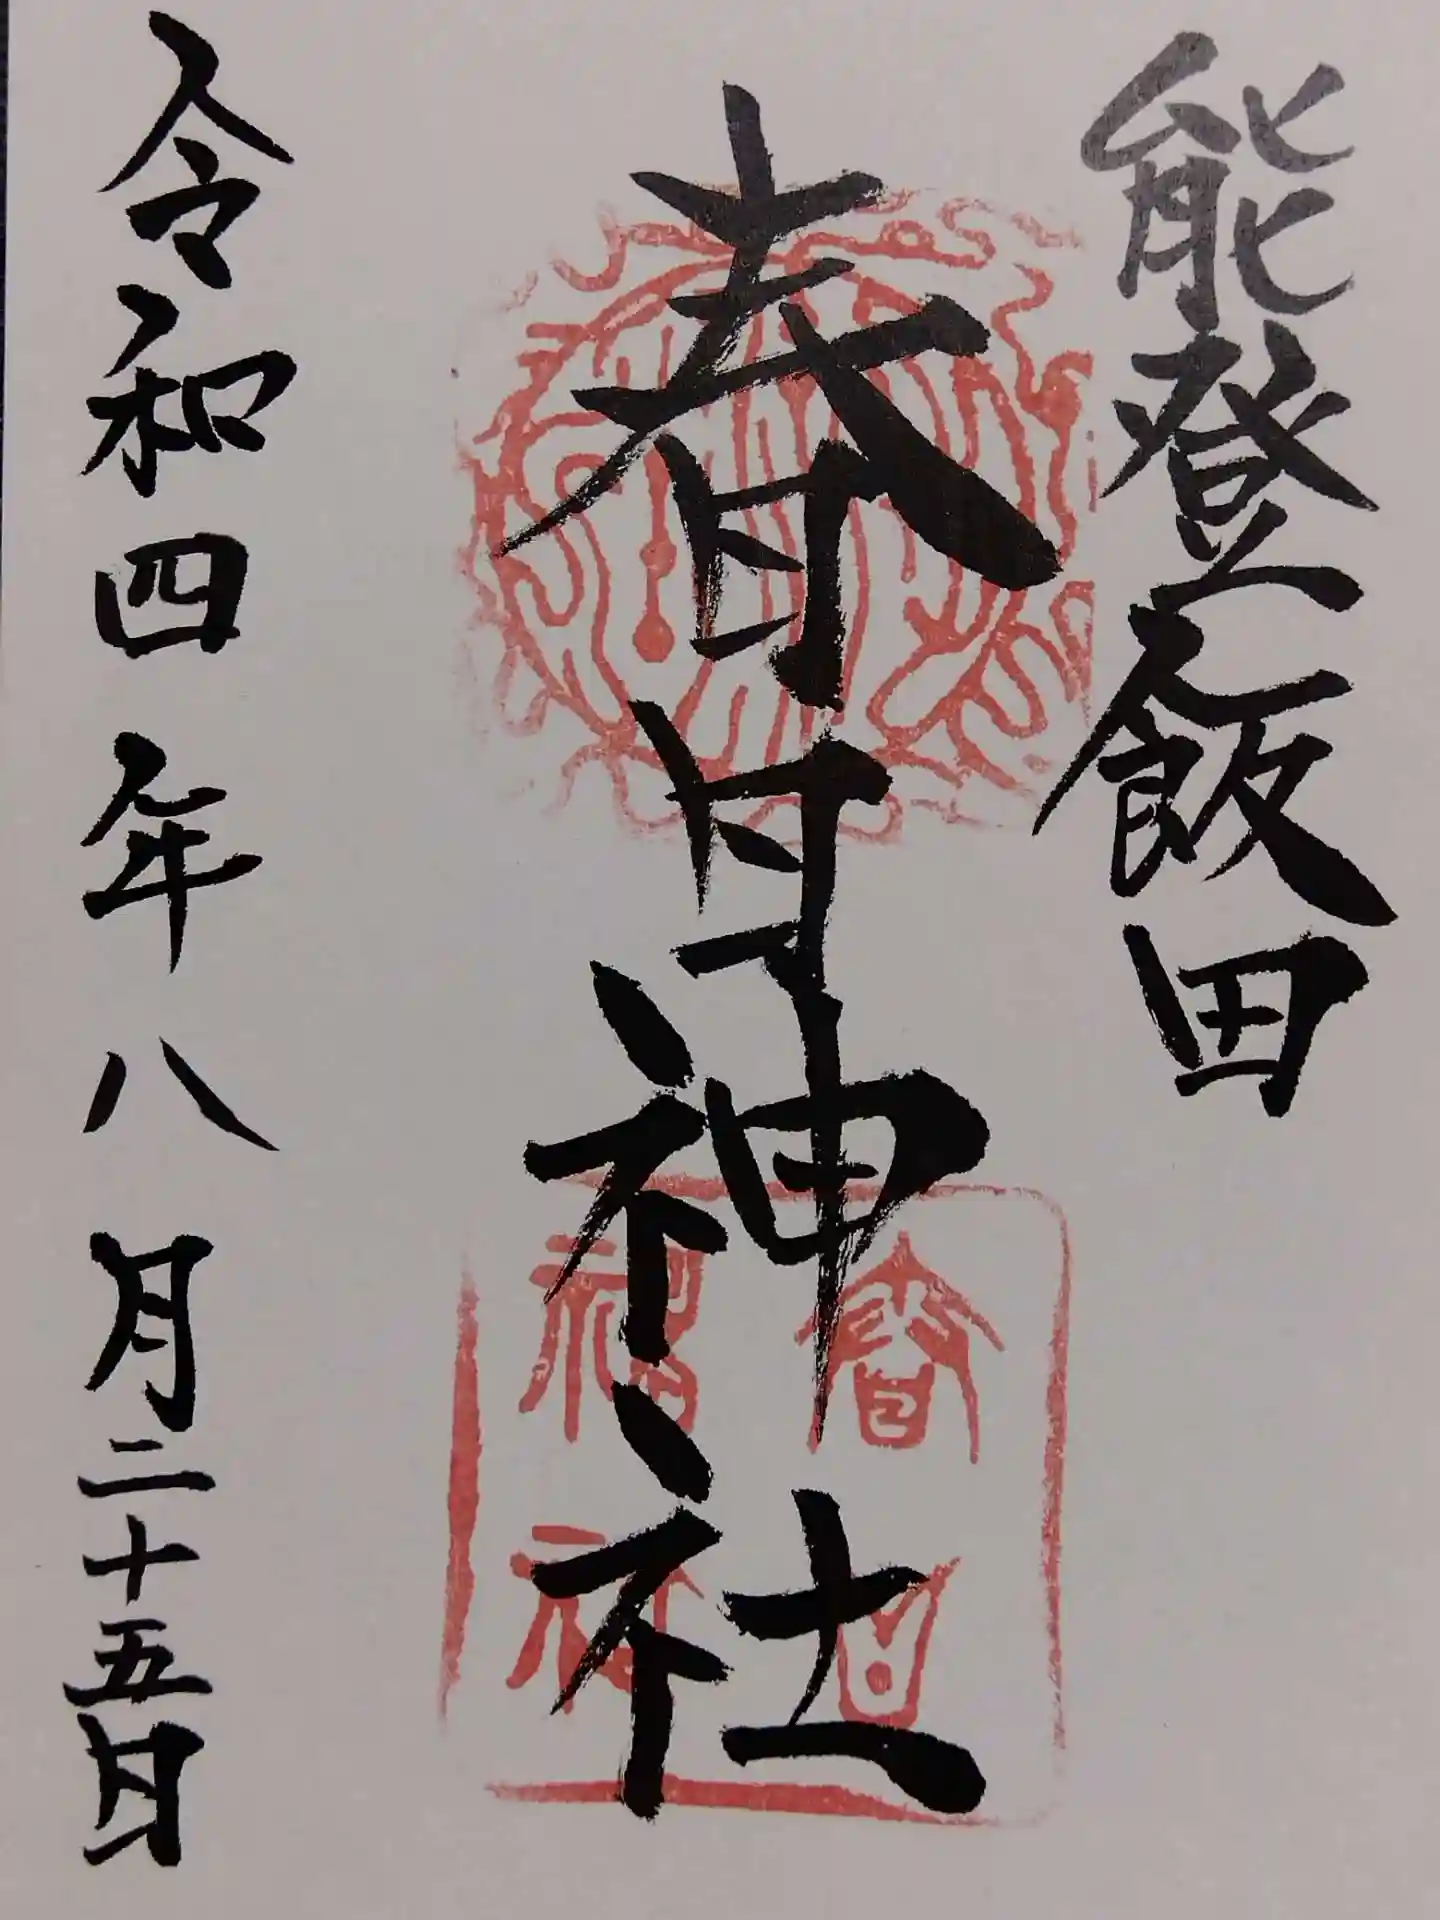 能登飯田
春日神社
春日神社
令和四年八月二十五日